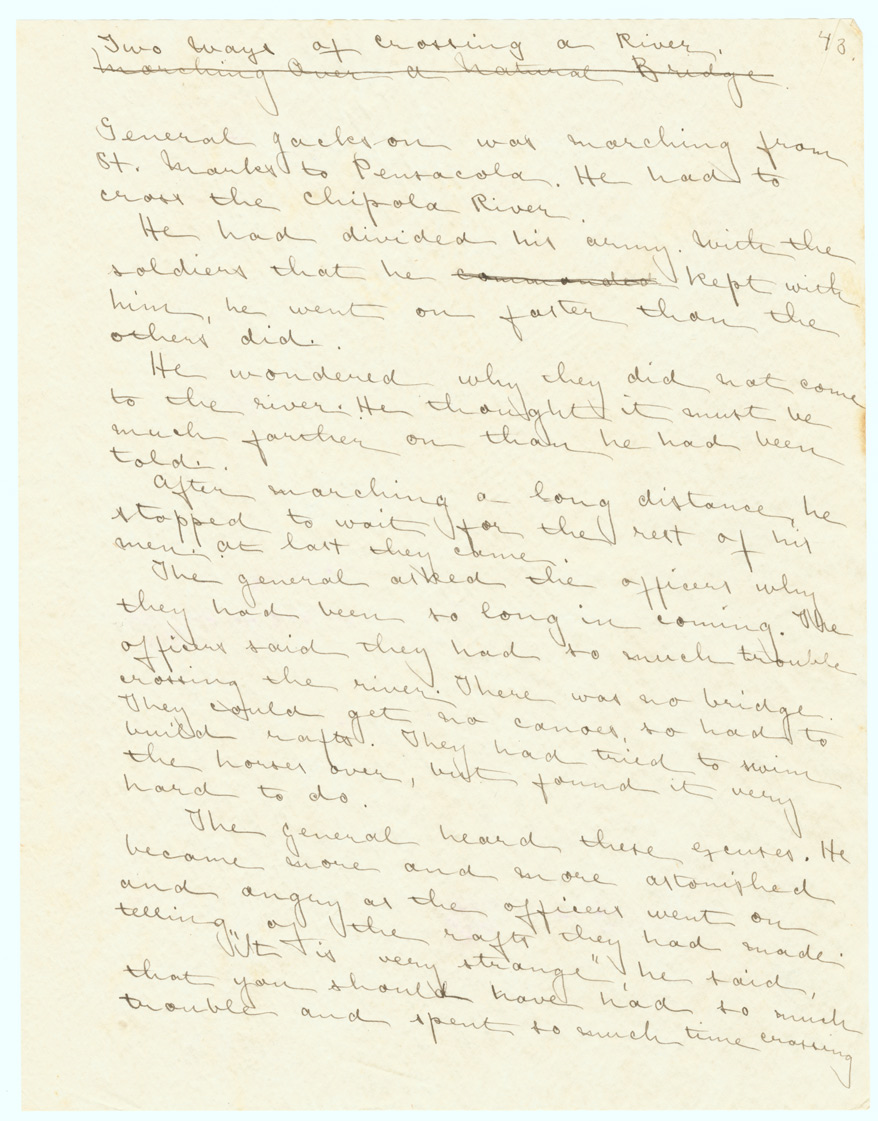 43.
Two Ways of crossing a River.
Marching Over a Natural Bridge.
General Jackson was marching from
St. Marks to Pensacola. He had to
cross the Chipola River.
He had divided his army. With the
soldiers that he commanded kept with
him, he went on faster than the
others did.
He wondered why they did not come
to the river. He thought it must be
much farther on than he had been
told.
After marching a long distance, he
stopped to wait for the rest of his
men. At last they came.
The general asked the officers why
they had been so long in coming. The
officers said they had so much trouble
crossing the river. There was no bridge.
They could get no canoes, so had to
build rafts. They had tried to swim
the horses over, but found it very
hard to do.
The general heard these excuses. He
became more and more astonished
and angry as the officers went on
telling of the rafts they had made.
"It is very strange" he said,
that you should have had so much
trouble and spent so much time crossing